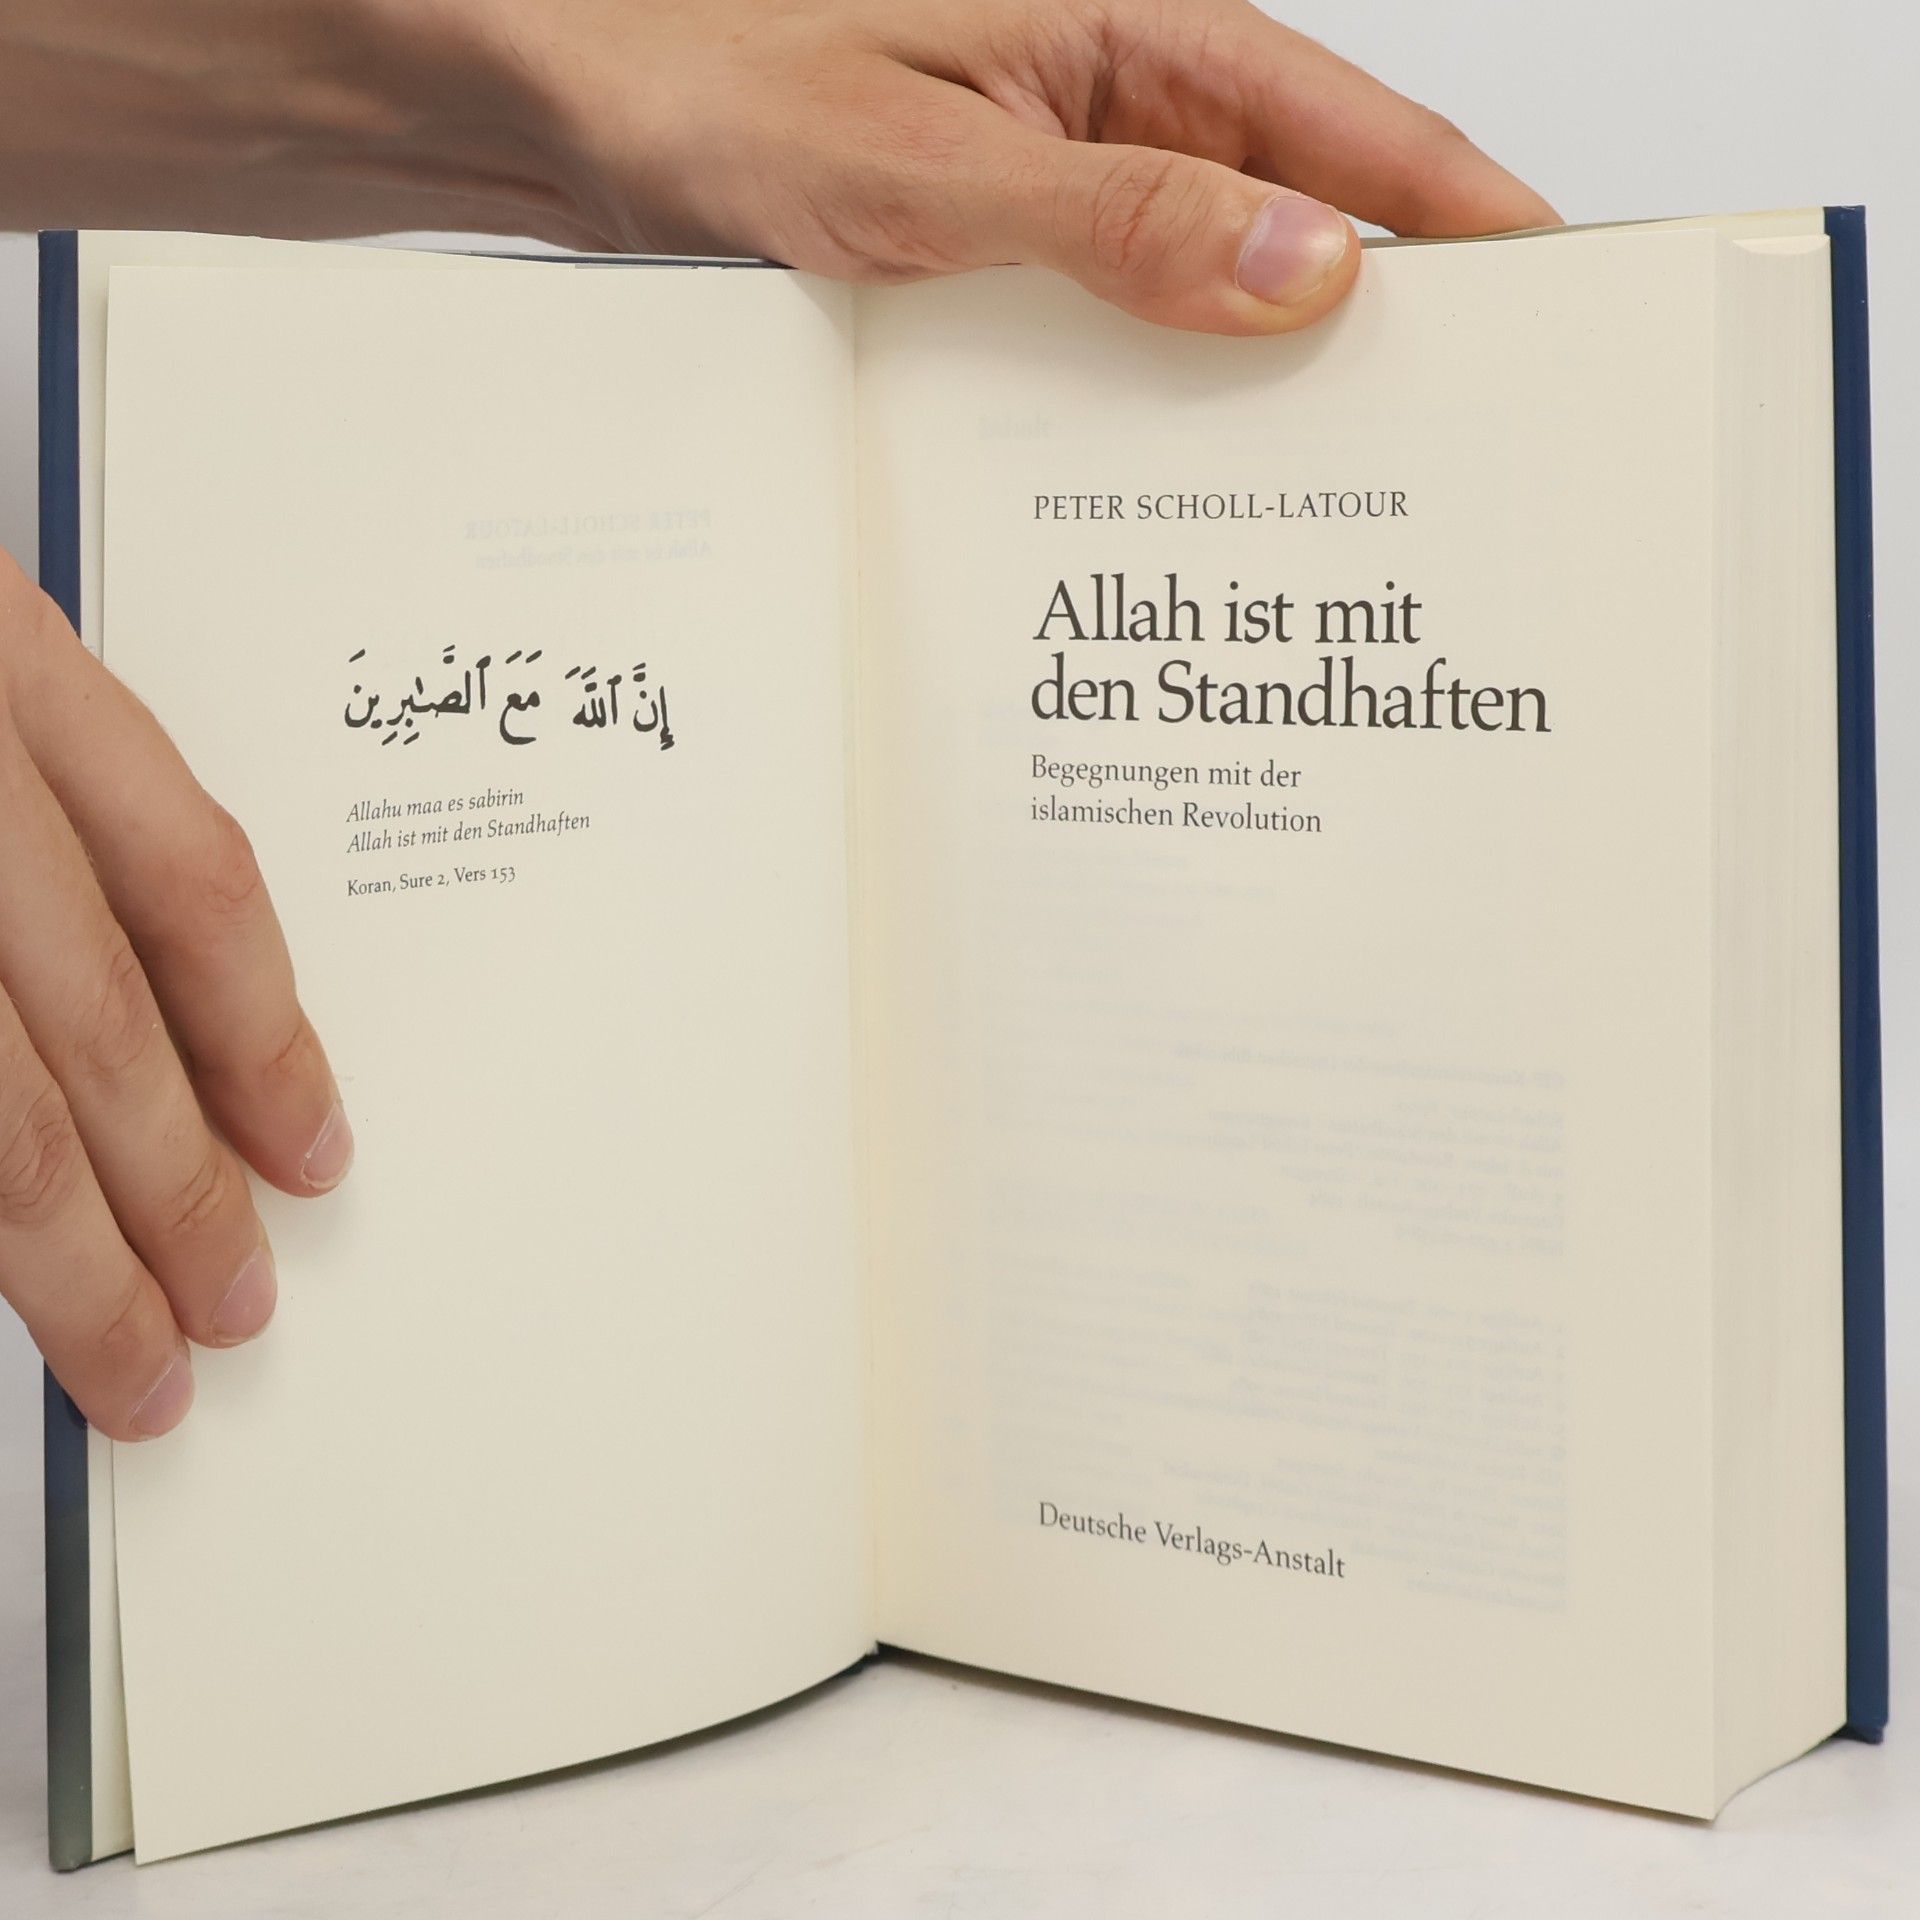 إِنَّ ٱللَّهَ مَعَ ٱلصَّـٰبِرِينَ
Allahu maa es sabirin
Allah ist mit den Standhaften
Koran, Sure 2, Vers 153
PETER SCHOLL-LATOUR
Allah ist mit
den Standhaften
Begegnungen mit der
islamischen Revolution
Deutsche Verlags-Anstalt